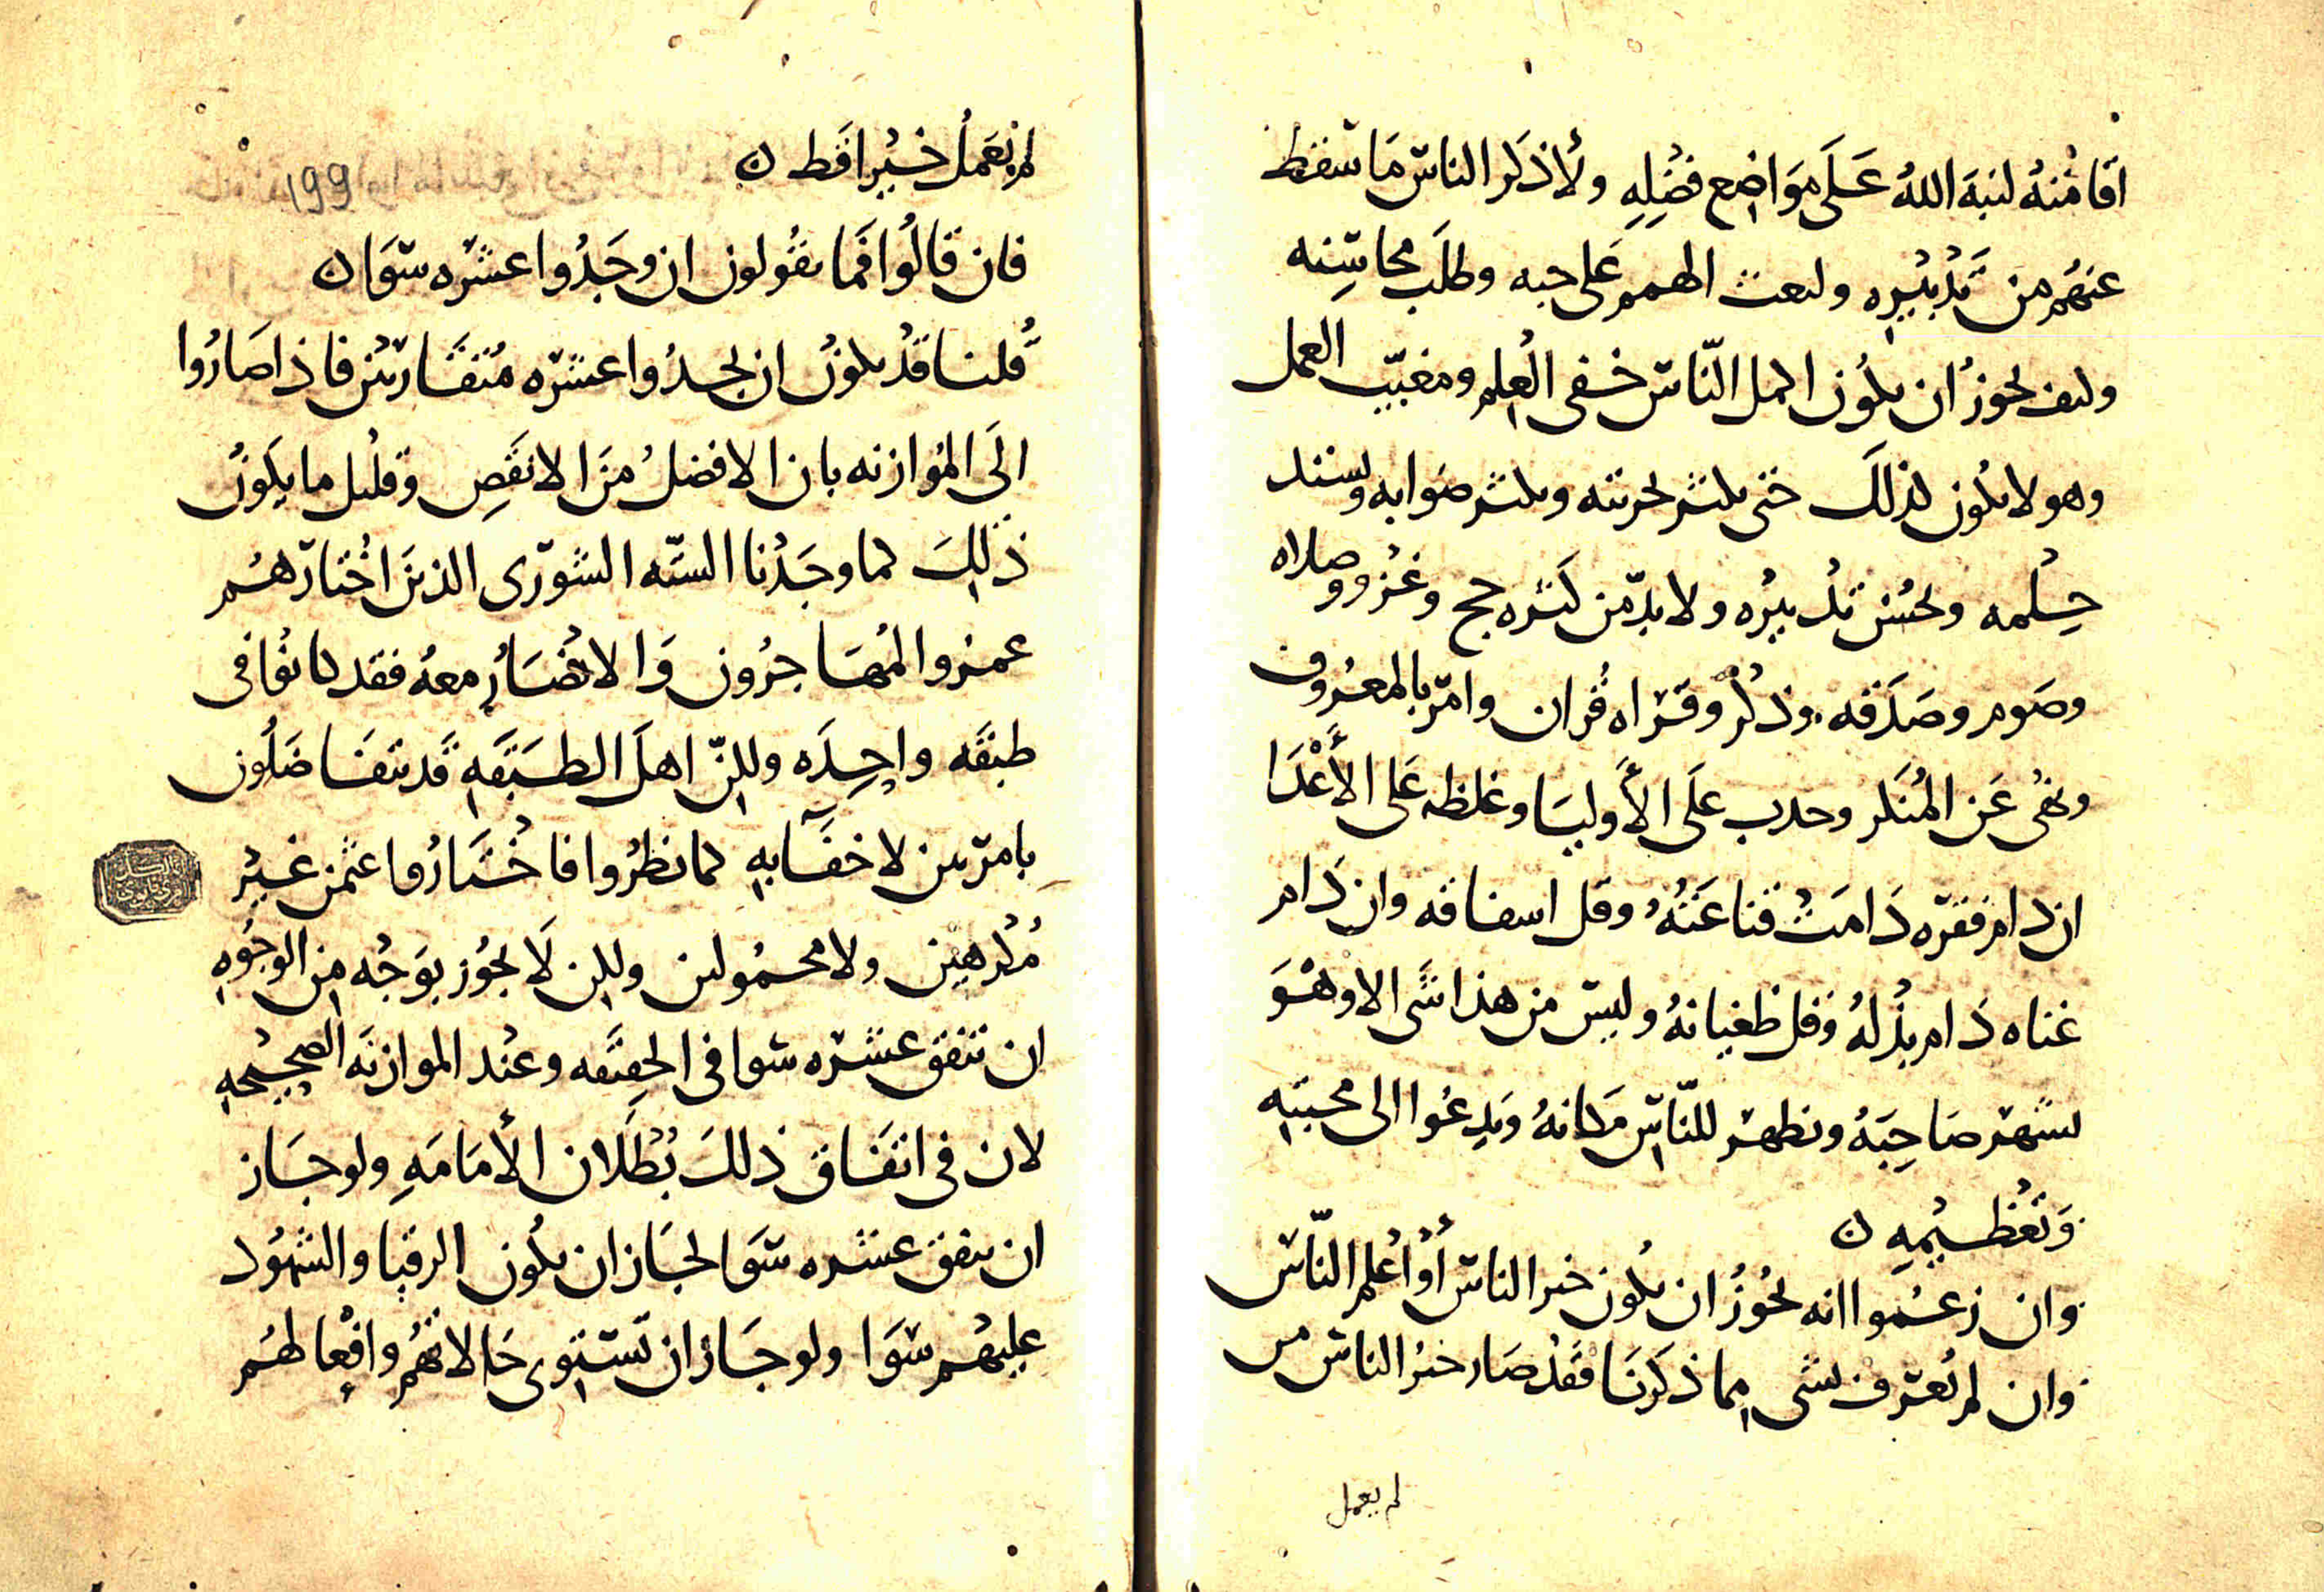 اقامته لنبه الله على مواضع فضله ولاذكر الناس ما سقط
عنهم من تدبيره ولبعث الهمم على حبه وطلب محاسنه
وكيف يجوز ان يكون اكمل الناس خفى العلم ومغيب العمل
وهو لا يكون كذلك حتى يكثر تجربته ويكثر صوابه ويشتد
حلمه ويحسن تدبيره ولا بد من كثره حج وغزو وصلاه
وصوم وصدقه وذكر وقراه قران وامر بالمعروف
ونهى عن المنكر وحدب على الأوليا وغلظه على الأعدا
ان دام فقره دامت قناعته وقل اسفافه وان دام
غناه دام بذله وقل طغيانه وليس من هذا شى الا وهو
يشهر صاحبه ويظهر للناس مكانه ويدعوا الى محبته
وتعظيمه ن
وان زعموا انه يجوز ان يكون خير الناس أو اعلم الناس
وان لم يعرف بشى مما ذكرنا فقد صار خير الناس من
لم يعمل
لم يعمل خيرا قط ن
199
فان قالوا فما تقولون ان وجدوا عشره سوا ن
قلنا قد يكون ان يجدوا عشره متقاربين فاذا صاروا
الى الموازنه بان الافضل من الانقص وقليل ما يكون
ذلك كما وجدنا السته الشورى الذين اختارهم
عمر والمهاجرون والانصار معه فقد كانوا فى
طبقه واحده ولكن اهل الطبقه قد يتفاضلون
بامر بين لا خفا به كما نظروا فاختاروا عثمن غير
مكرهين ولا محمولين ولكن لا يجوز بوجه من الوجوه
ان تتفق عشره سوا فى الحقيقه وعند الموازنه الصحيحه
لان فى اتفاق ذلك بطلان الأمامه ولو جاز
ان يتفق عشره سوا لجاز ان يكون الرقبا والشهود
عليهم سوا ولو جاز ان تستوى حالاتهم وافعالهم